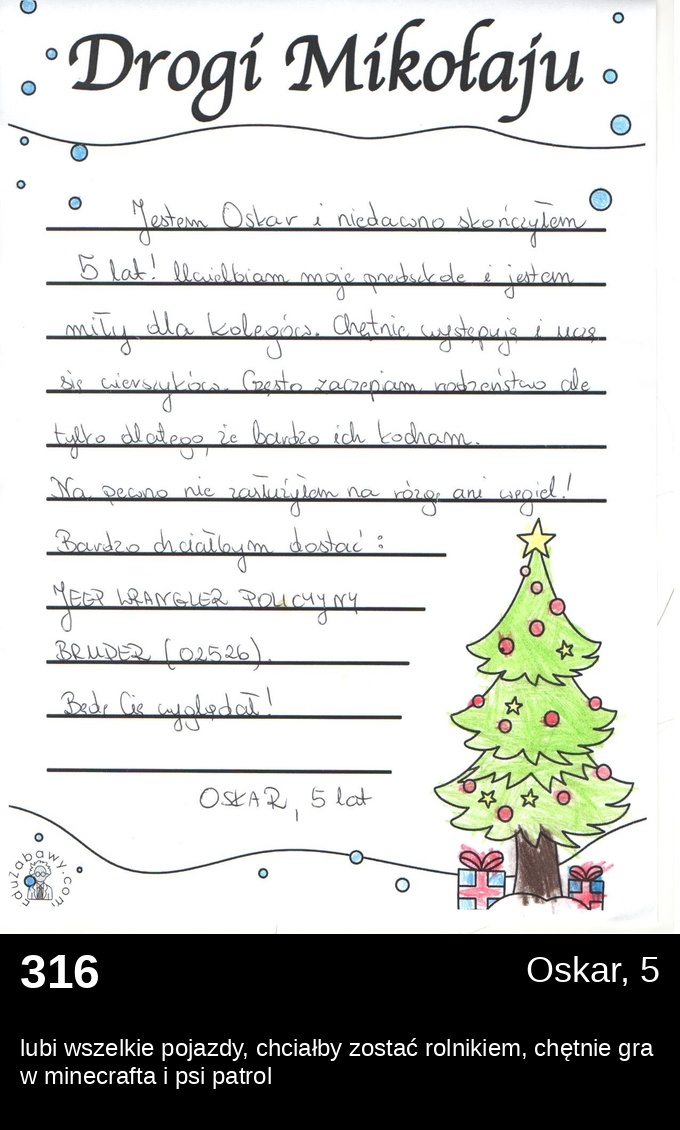 Drogi Mikołaju
Jestem Oskar i niedawno skończyłem
5 lat! Uwielbiam moje przedszkole i jestem
miły dla kolegów. Chętnie występuję i uczę
się wierszyków. Często zaczepiam rodzeństwo ale
tylko dlatego, że bardzo ich kocham.
Na pewno nie zasłużyłem na rózgę ani węgiel!
Bardzo chciałbym dostać:
JEEP WRANGLER POLICYJNY
BRUDER (02526).
Będę Cię wyglądał!
OSKAR, 5 lat
eduzabawy.com
316
Oskar, 5
lubi wszelkie pojazdy, chciałby zostać rolnikiem, chętnie gra
w minecrafta i psi patrol